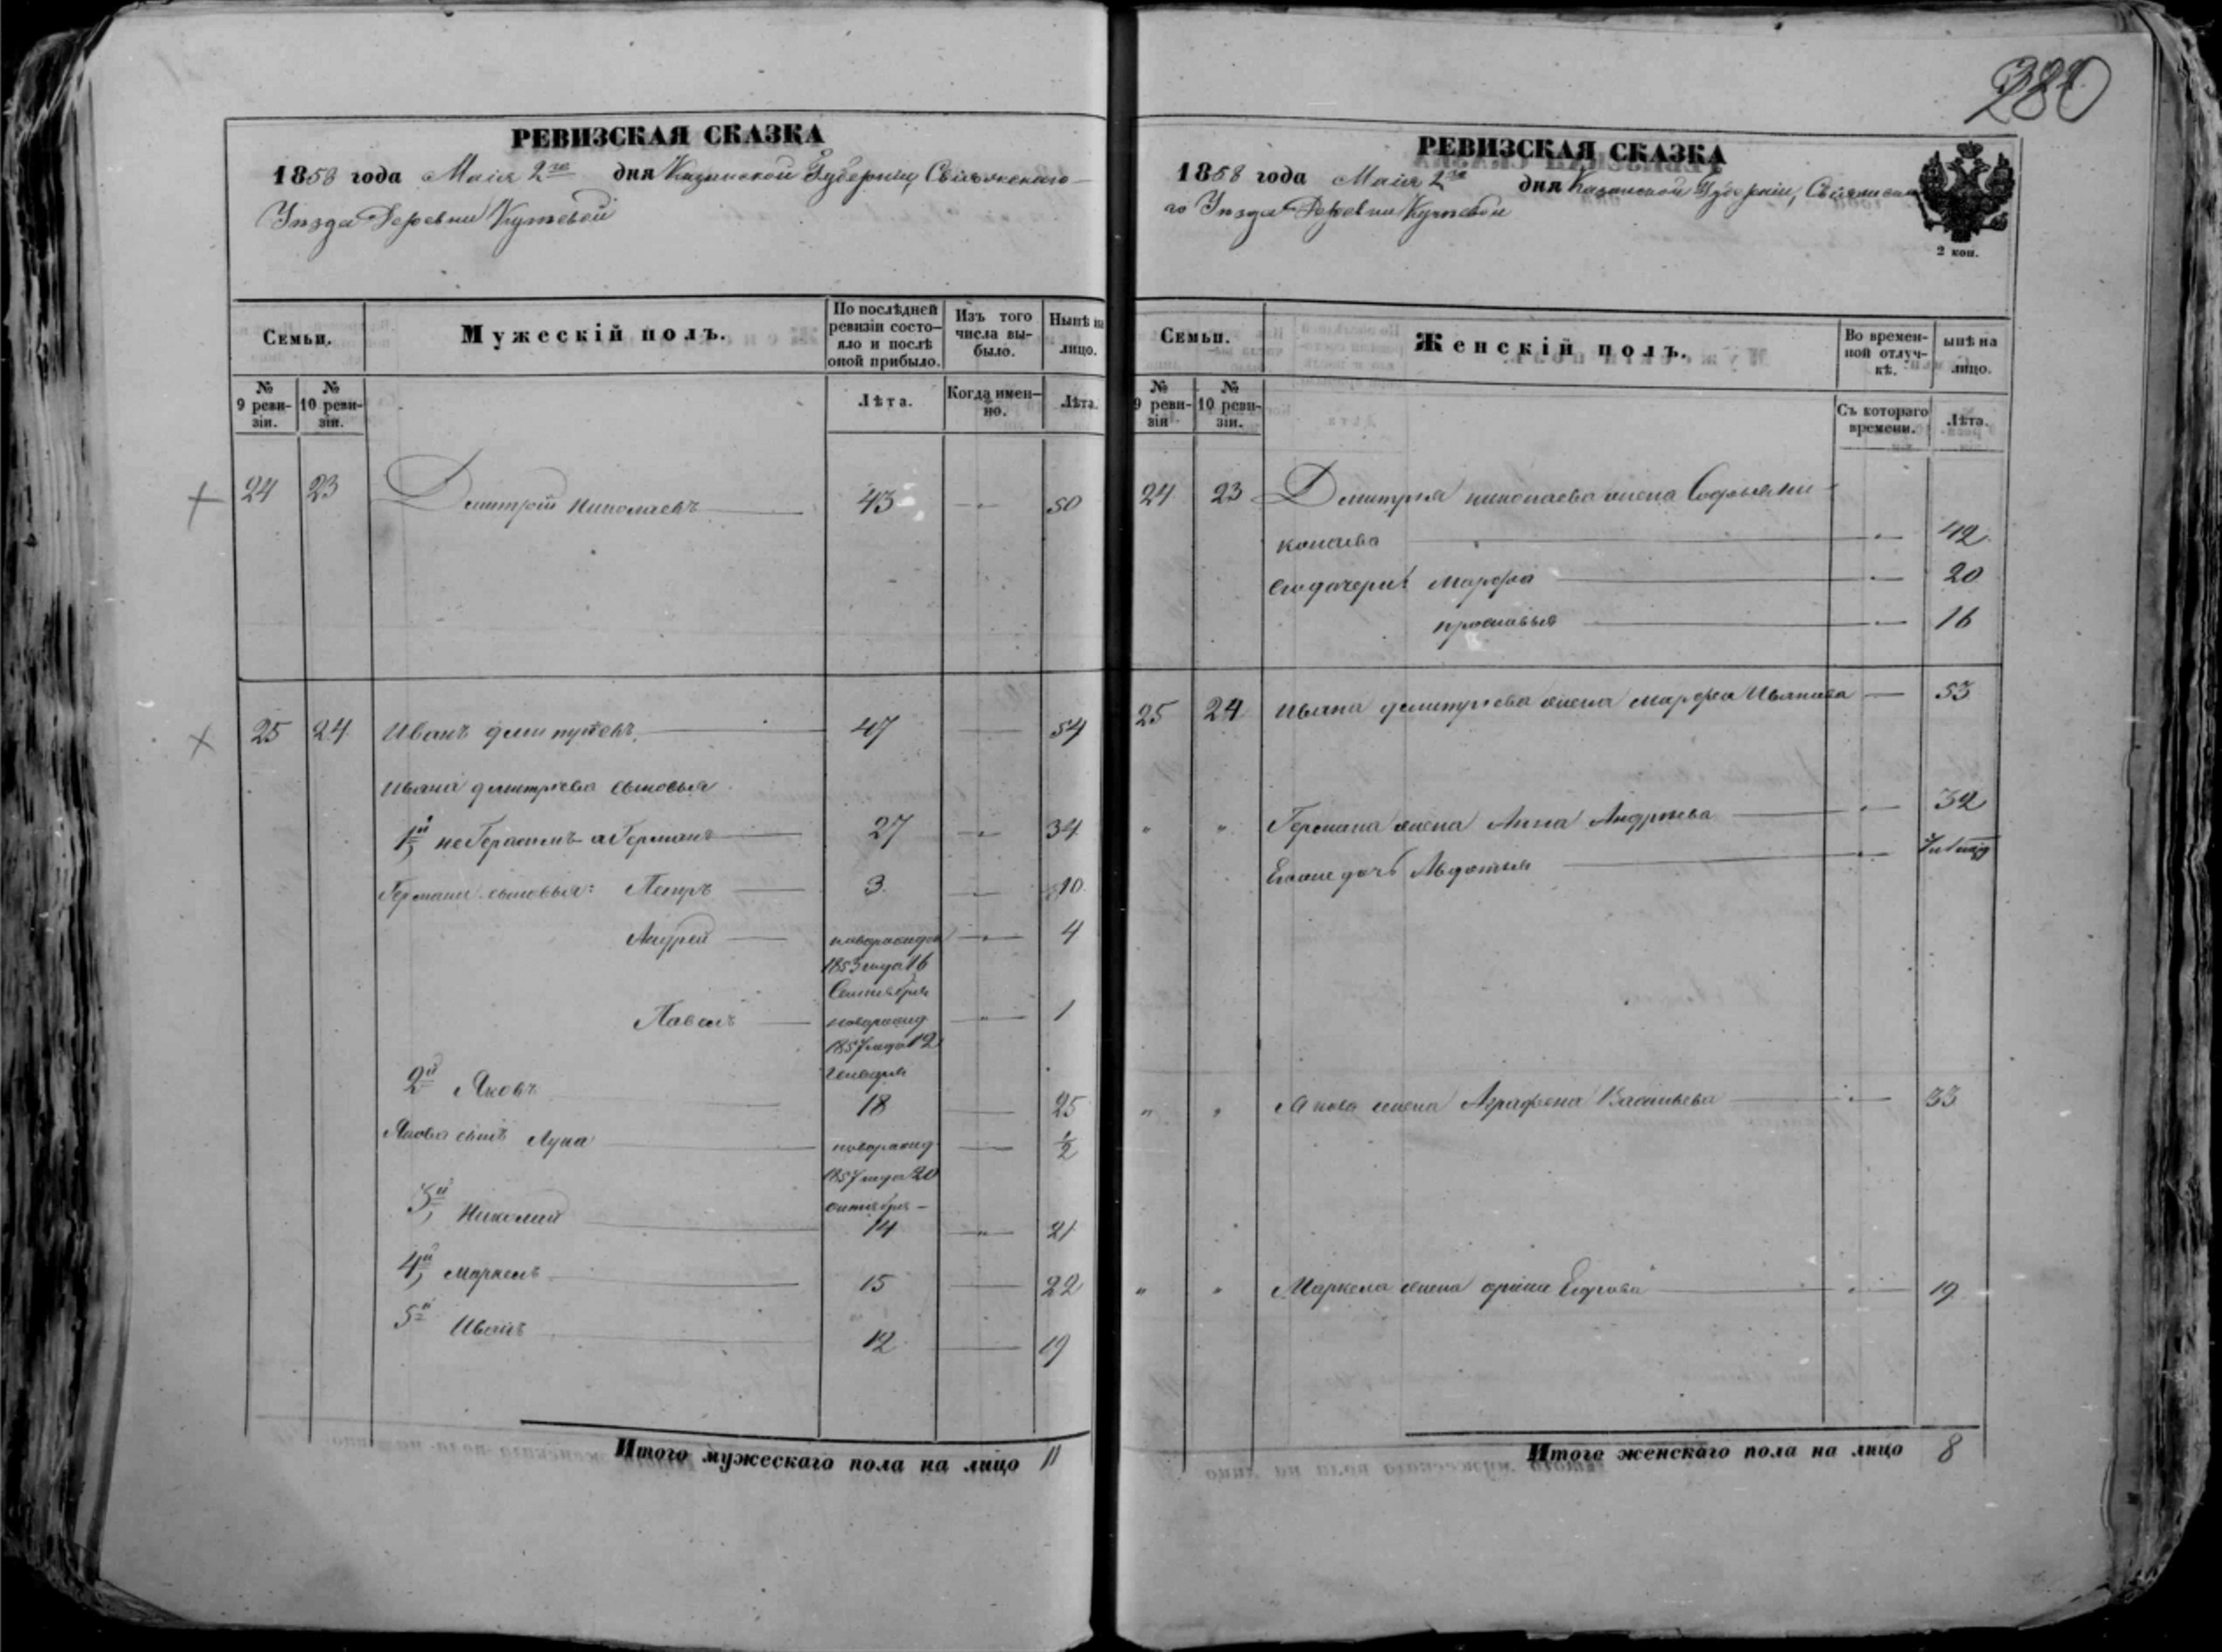 280
РЕВИЗСКАЯ СКАЗКА
1858 года Маія 2го дня Казанской Губерніи Свіяжскаго
Уѣзда Деревни Кутеевой
Семьи.
Мужескій полъ.
По послѣдней ревизіи состо-
яло и послѣ
оной прибыло.
Изъ того
числа вы-
было.
Нынѣ на
лицо.
№
9 реви-
зіи.
№
10 реви-
зіи.
Лѣта.
Когда имен-
но.
Лѣта.
24 23 Дмитрій Николаевъ 43 50
25 24 Иванъ Дмитріевъ 47 54
Ивана Дмитріева сыновья
1й неГерасимъ аГерманъ 27 34
Германа сыновья: Петръ 3 10
Андрей новорожден 4
1853 года 16
Сентября
Павелъ новорожд 1
1857 года 12
Генваря
2й Яковъ 18 25
Якова сынъ Лука новорожд 1/2
1857 года 20
октября
3й Николай 14 21
4й Маркелъ 15 22
5й Иванъ 12 19
Итого мужескаго пола на лицо 11
РЕВИЗСКАЯ СКАЗКА
1858 года Маія 2го дня Казанской Губерніи, Свіяжска
го Уѣзда Деревни Кутеевой
2 коп.
Семьи.
Женскій полъ.
Во времен-
ной отлуч-
кѣ.
ынѣ на
лицо.
№
9 реви-
зіи
№
10 реви-
зіи.
Съ котораго
времени.
Лѣта.
24 23 Дмитрія Николаева жена Софья Ни
колаева 42
Его дочери: Марфа 20
Прасковья 16
25 24 Ивана Дмитріева жена Марфа Иванова 53
" " Германа жена Анна Андреева 32
Ея же дочь Авдотья
" " Якова жена Аграфена Васильева 33
" " Маркела жена Орина Егорова 19
Итого женскаго пола на лицо 8